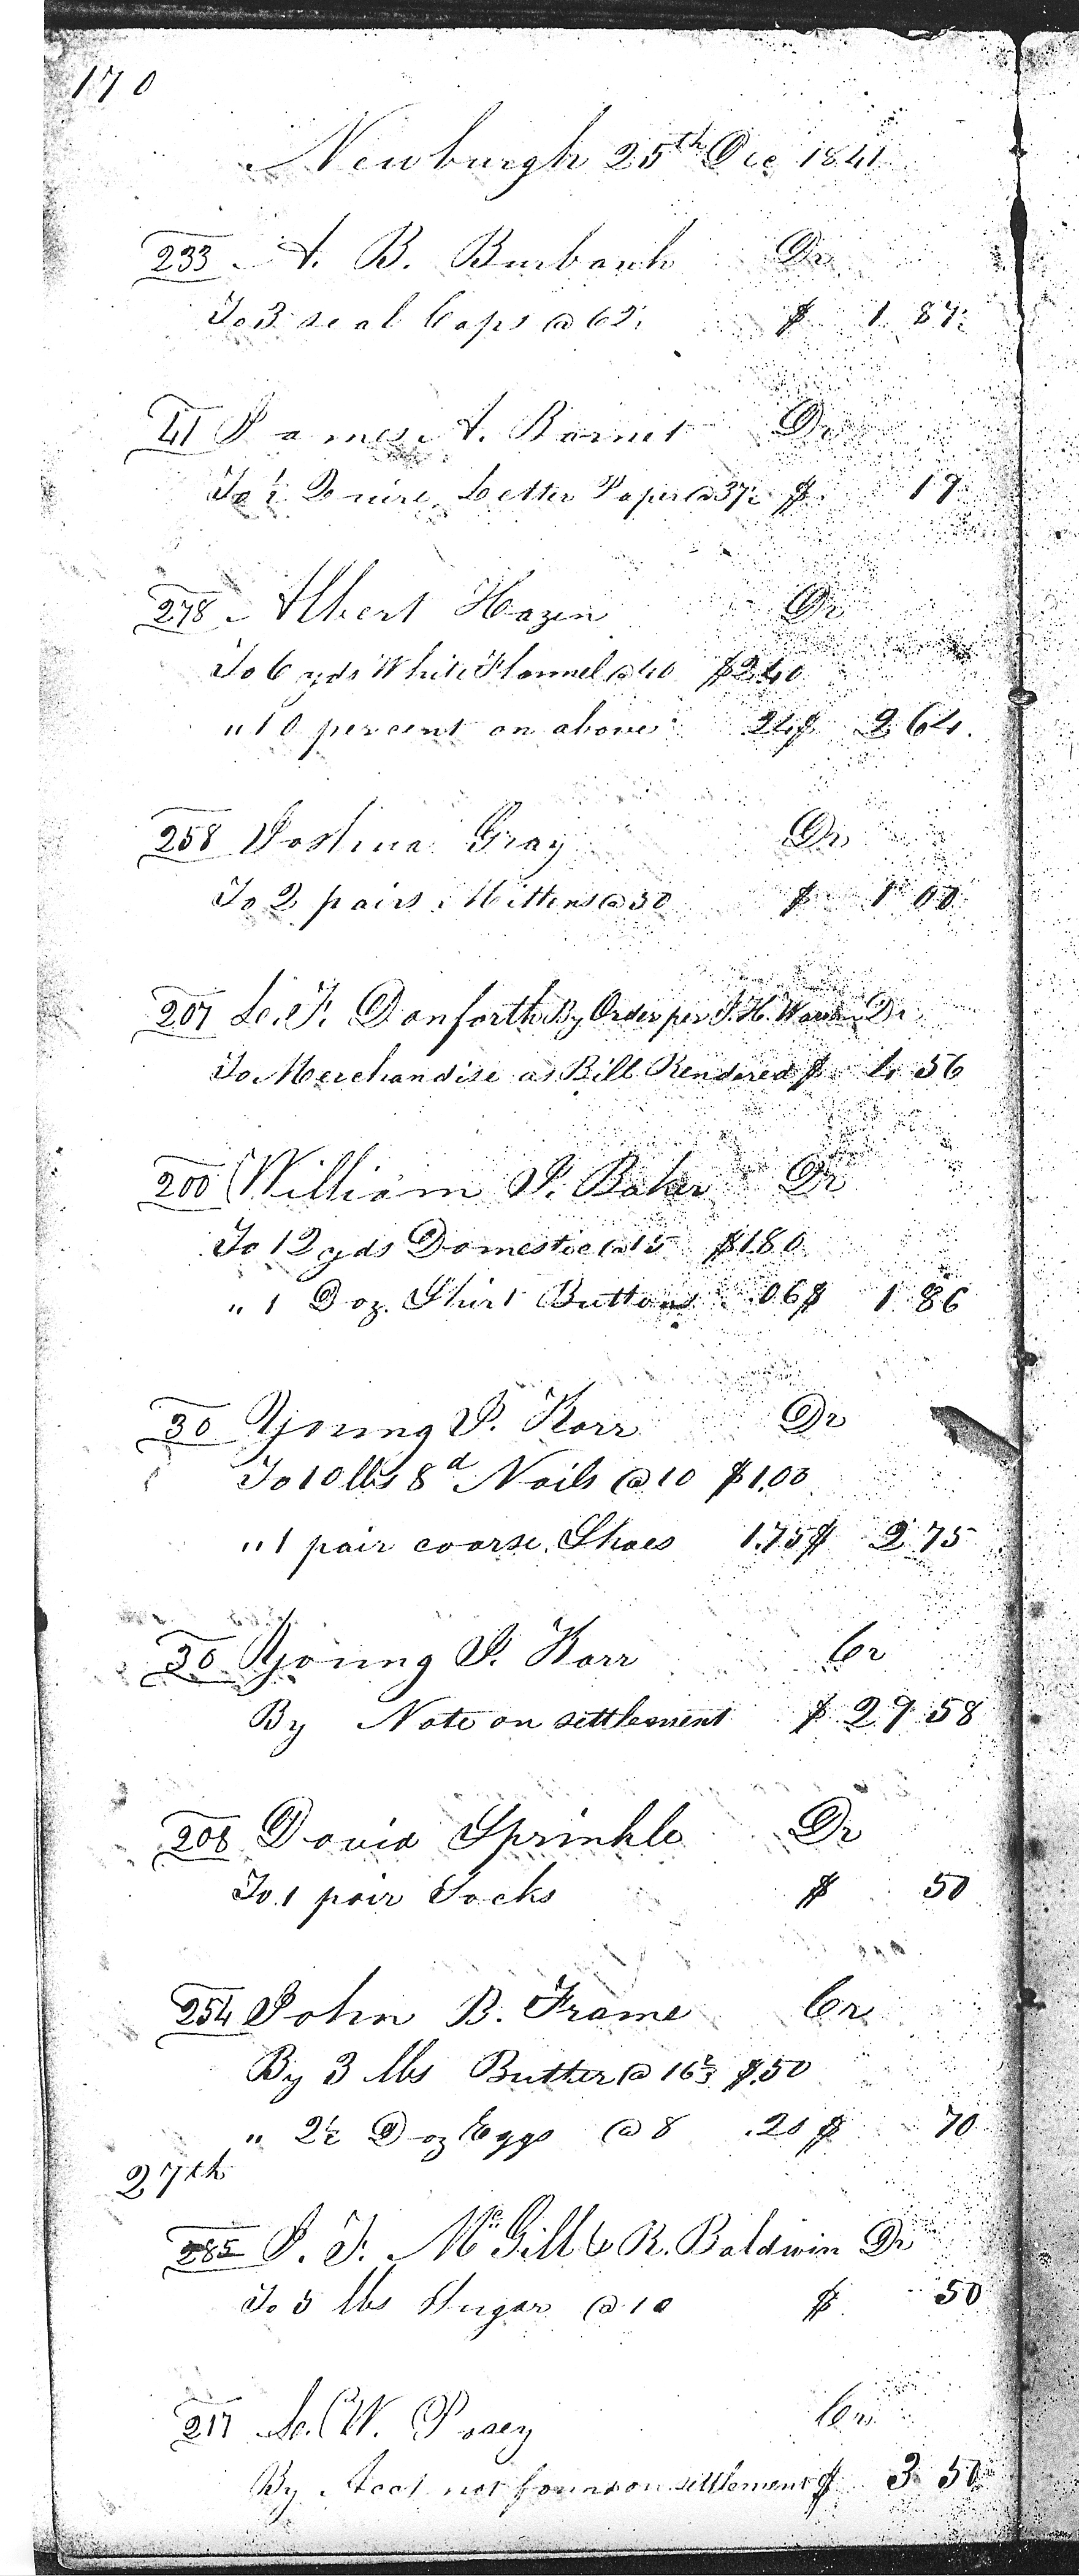 170
Newburgh 25th Dec 1841
233 A. B. Burbank Dr
To 3 seal Caps @ 62½ $ 1 87½
41 James A. Barnet Dr
To ½ Quire Letter Paper @ 37½ $ 19
278 Albert Hazen Dr
To 6 yds White Flannel @ 40 $2.40
" 10 percent on above 24 $ 2 64
258 Joshua Gray Dr
To 2 pairs Mittens @ 50 $ 1 00
207 L. F. Danforth By Order per J. H. Warren Dr
To Merchandise as Bill Rendered $ 4 56
200 William J. Baker Dr
To 12 yds Domestic @ 15 $1.80
" 1 Doz. Shirt Buttons .06 $ 1 86
30 Young J. Karr Dr
To 10 lbs 8d Nails @ 10 $1.00
" 1 pair coarse Shoes 1.75 $ 2 75
30 Young J. Karr Cr
By Note on settlement $ 29 58
208 David Sprinkle Dr
To 1 pair Socks $ 50
254 John B. Frame Cr
By 3 lbs Butter @ 16⅔ $.50
" 2½ Doz Eggs @ 8 .20 $ 70
27th
285 J. F. McGill & R. Baldwin Dr
To 5 lbs Sugar @ 10 $ 50
217 L. W. Posey Cr
By Acct not found on settlement $ 3 50